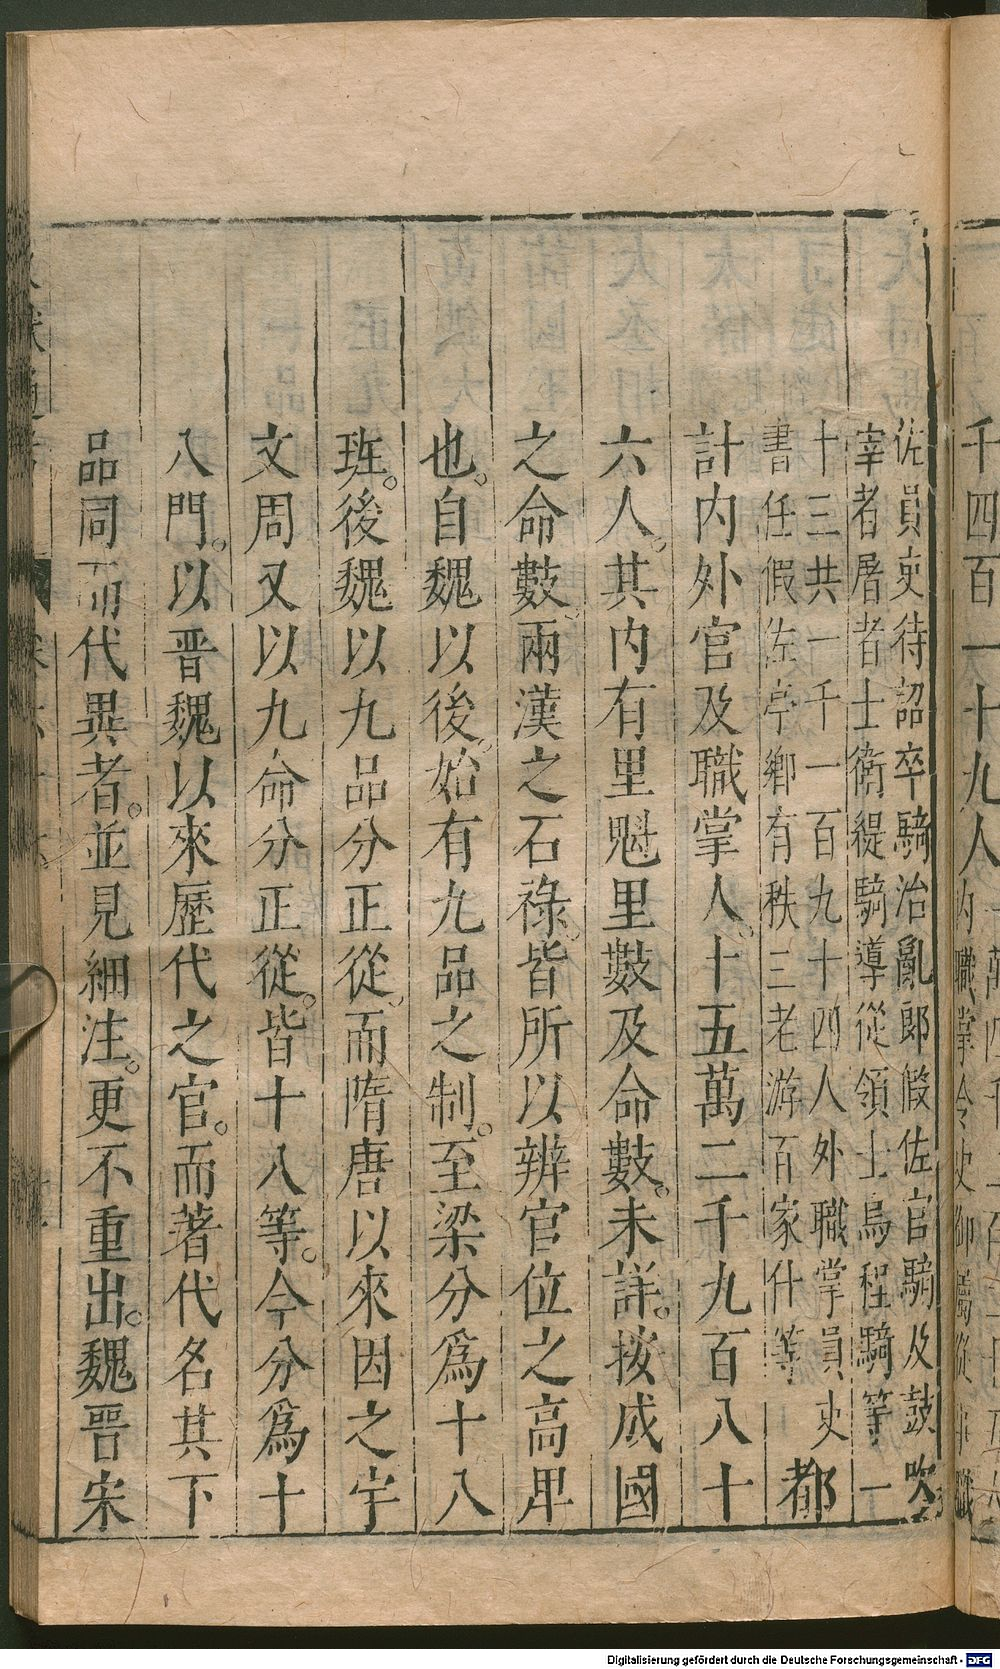 佐員吏待詔卒騶治亂郎假佐官騶及鼓吹
宰者屠者士衛緹騎導從領士烏程騶等一
十三共一千一百九十四人外職掌員吏
書任假佐亭鄉有秩三老游百家什等
都
計內外官及職掌人。十五萬二千九百八十
六人。其內有里魁里數及命數。未詳。按成國
之命數。兩漢之石祿。皆所以辨官位之高卑
也。自魏以後。始有九品之制。至梁分爲十八
班。後魏以九品分正從。而隋唐以來因之宇
文周又以九命分正從。皆十八等。今分爲十
八門。以晉魏以來歷代之官。而著代名其下
品同而代異者。並見細注。更不重出。魏晉宋
千四百一十九人
內職掌令史御
Digitalisierung gefördert durch die Deutsche Forschungsgemeinschaft - DFG